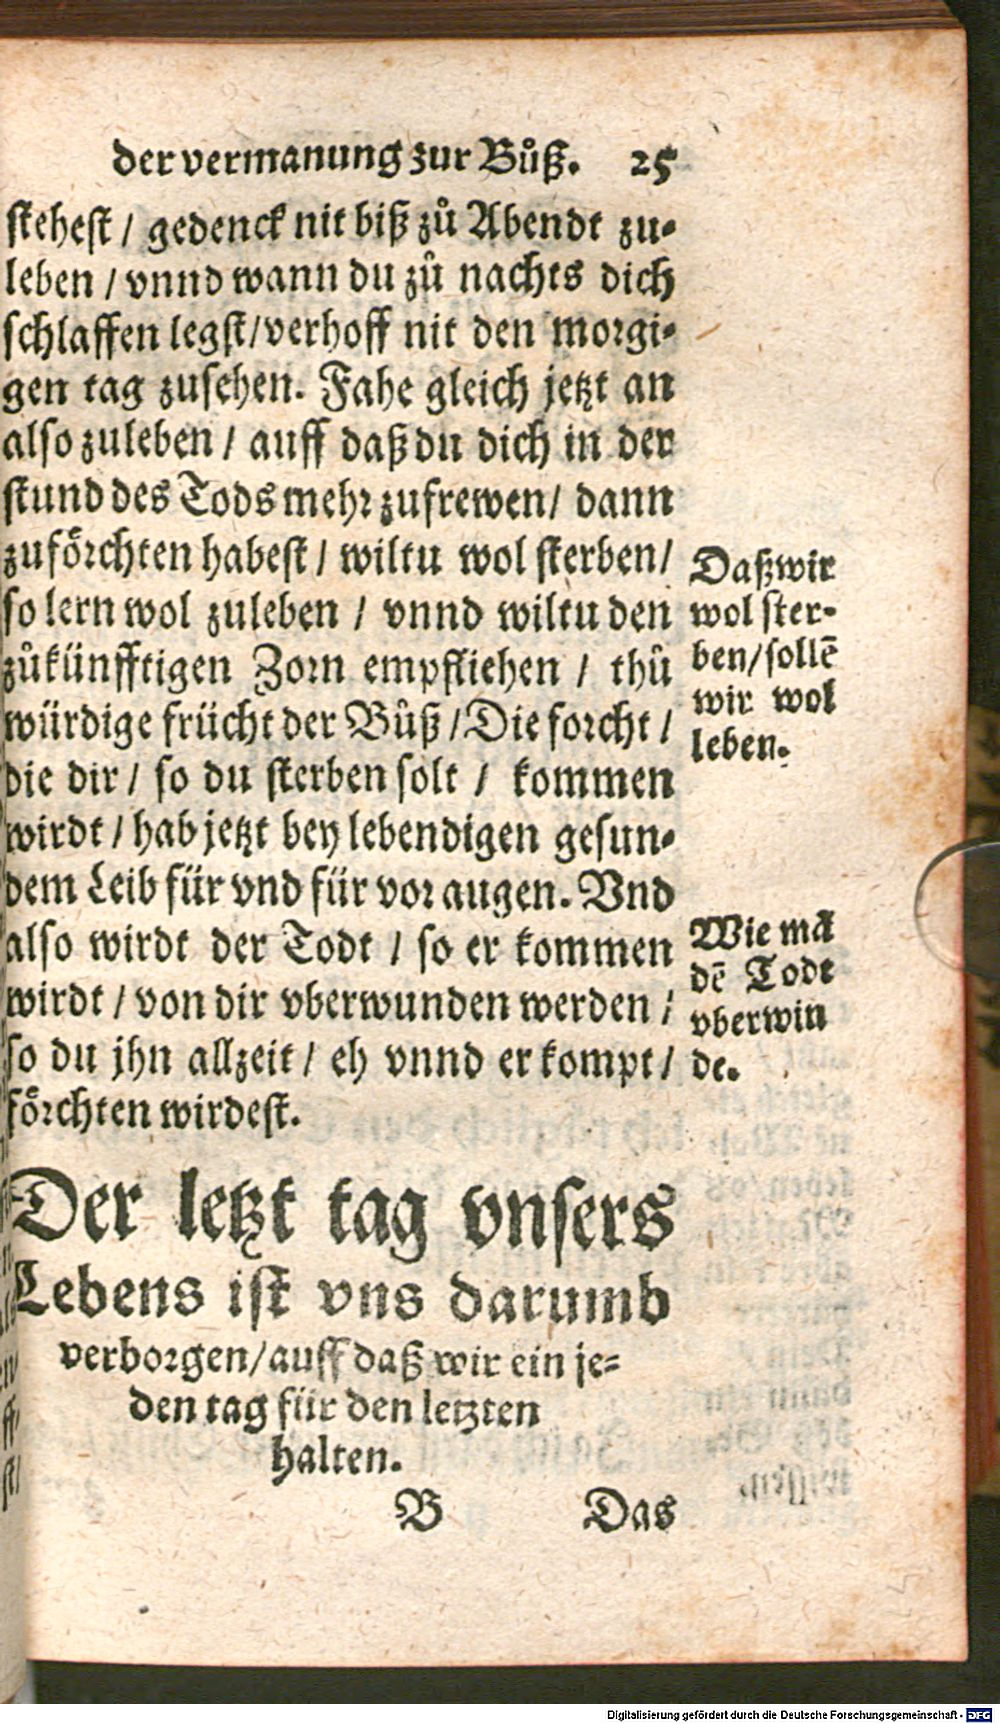 der vermanung zur Bůß. 25
stehest / gedenck nit biß zů Abendt zu-
leben / vnnd wann du zů nachts dich
schlaffen legst/verhoff nit den morgi-
gen tag zusehen. Fahe gleich jetzt an
also zuleben / auff daß du dich in der
stund des Tods mehr zufrewen/ dann
zufoͤrchten habest / wiltu wol sterben/
so lern wol zuleben / vnnd wiltu den
zůkünfftigen Zorn empfliehen / thů
würdige frücht der Bůß / Die forcht /
die dir / so du sterben solt / kommen
wirdt / hab jetzt bey lebendigen gesun-
dem Leib für vnd für vor augen. Vnd
also wirdt der Todt / so er kommen
wirdt / von dir vberwunden werden /
so du jhn allzeit / eh vnnd er kompt /
foͤrchten wirdest.
Daß wir
wol ster-
ben/sollē
wir wol
leben.
Wie mā
dē Todt
vberwin
de.
Der letzt tag vnsers
Lebens ist vns darumb
verborgen/auff daß wir ein je-
den tag für den letzten
halten.
B Das
Digitalisierung gefördert durch die Deutsche Forschungsgemeinschaft - DFG